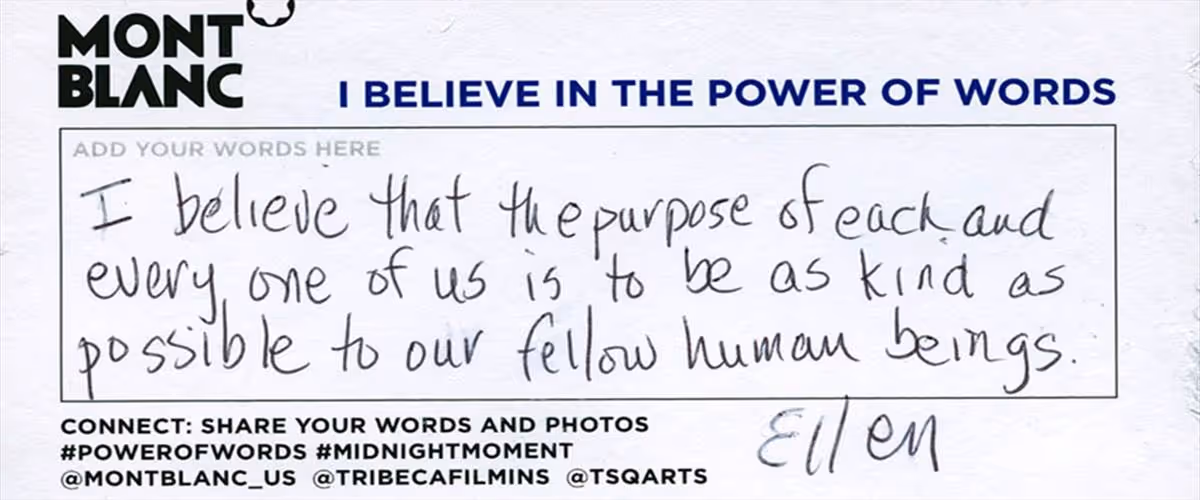 MONT
BLANC
I BELIEVE IN THE POWER OF WORDS
ADD YOUR WORDS HERE
I believe that the purpose of each and
every one of us is to be as kind as
possible to our fellow human beings.
Ellen
CONNECT: SHARE YOUR WORDS AND PHOTOS
#POWEROFWORDS #MIDNIGHTMOMENT
@MONTBLANC_US @TRIBECAFILMINS @TSQARTS